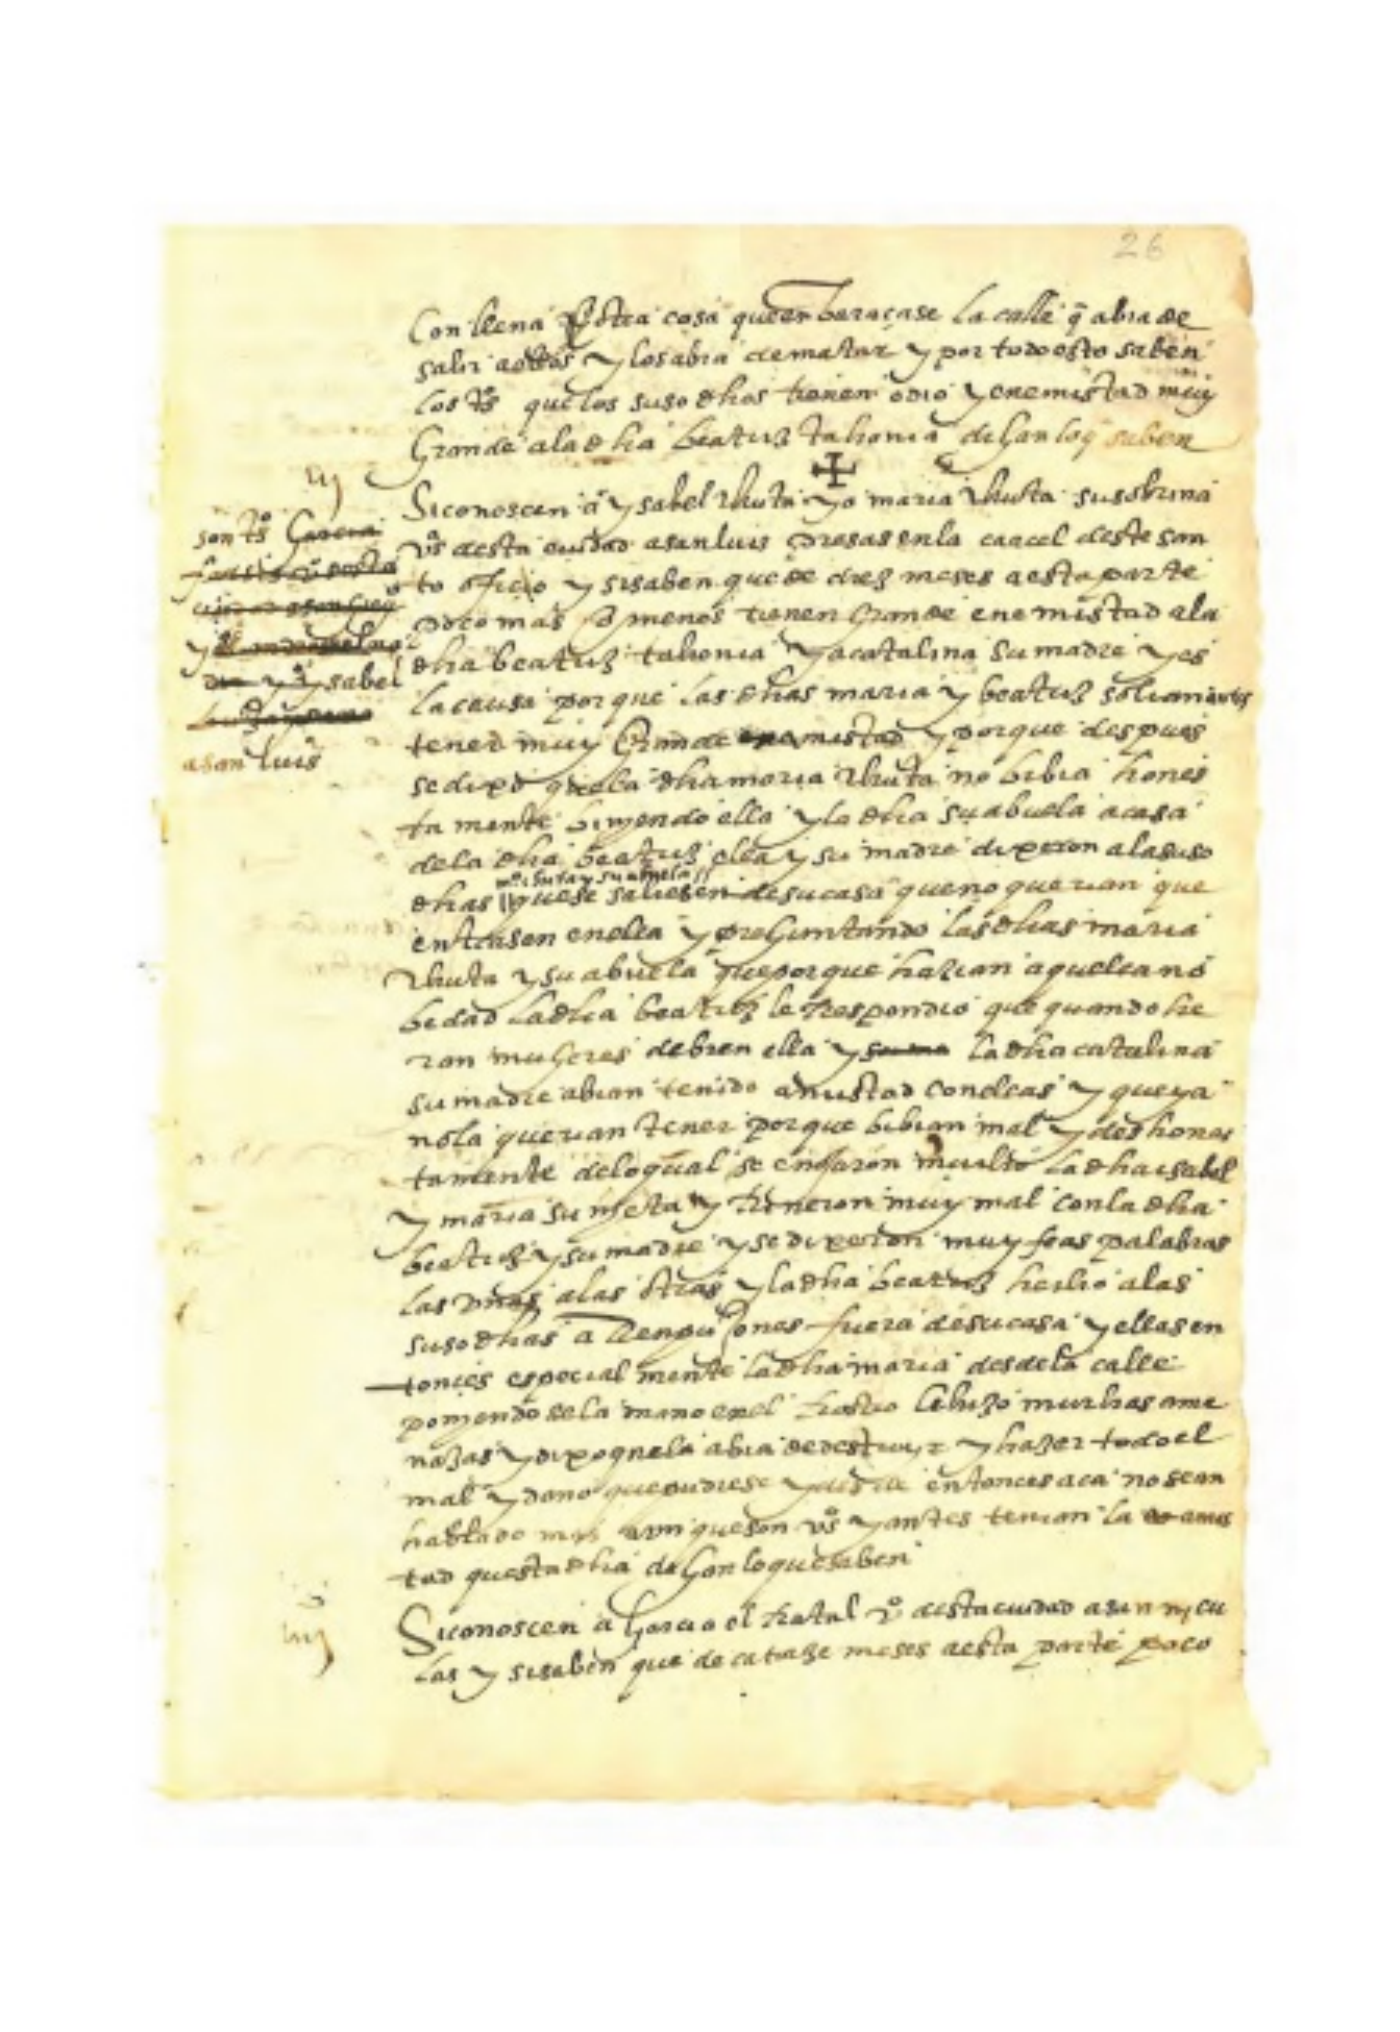 26
Con llena U otra cosa que enbaraçase la calle q̃ abia de
salir a ellos y los abia de matar y por todo esto saben
los tºs que los suso dhas tienen odio y enemistad muy
Grande a la dha beatriz tahonia digan lo q̃ saben
iij
Si conoscen a ysabel Rhuta y a maria Rhuta su sobrina
vºs desta ciudad a san luis presas en la carcel deste san
to oficio y si saben que de diez meses a esta parte
poco mas o menos tienen Grande enemistad a la
dha beatriz tahonia y a catalina su madre y es
la causa porque las dhas maria y beatriz solian antes
tener muy Grande amistad y porque despues
se dixo que la dha maria Rhuta no bibia hones
ta mente biniendo ella y la dha su abuela a casa
de la dha beatriz ella y su madre dixeron a la suso
dhas que se saliesen de su casa que no querian que
entrasen en ella y preguntando las dhas maria
Rhuta y su abuela que porque hazian aquella no
bedad la dha beatriz le Respondio que quando he
ran mugeres de bien ella y la dha catalina
su madre abian tenido amistad con ellas y que ya
no la querian tener porque bibian mal y deshones
tamente de lo qual se enojaron mucho la dha isabel
y maria su nieta y Riñeron muy mal con la dha
beatriz y su madre y se dixeron muy feas palabras
las vnas a las otras y la dha beatriz hecho a las
suso dhas a Renpujones fuera de su casa y ellas en
tonçes especial mente la dha maria desde la calle
poniendose la mano en el Rostro le hizo muchas ame
nazas y dixo que la abia de destruyr y hazer todo el
mal y daño que pudiese y desde entonces aca no se an
hablado mas aun que son vºs y antes tenian la amis
tad questa dha digan lo que saben
iiij
Si conoscen a Garcia el Ratal vº desta ciudad a san nicu
las y si saben que de catorze meses a esta parte poco
son tºs Garcia
y ysabel
a san luis